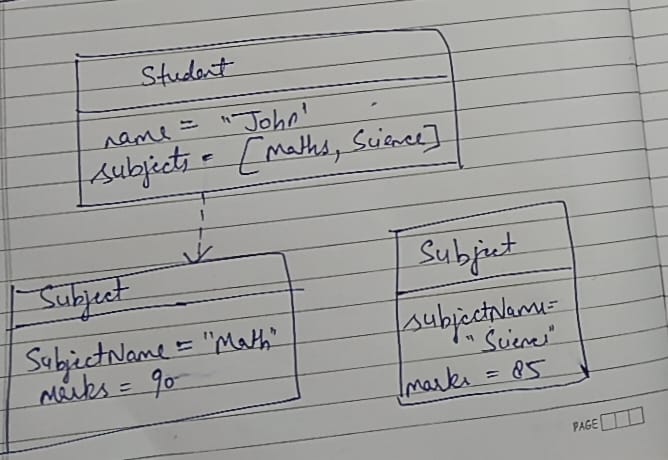 Student
name = "John'
subjects = [Maths, Science]
Subject
SubjectName = "Math"
marks = 90
Subject
subjectName=
"Science"
marks = 85
PAGE